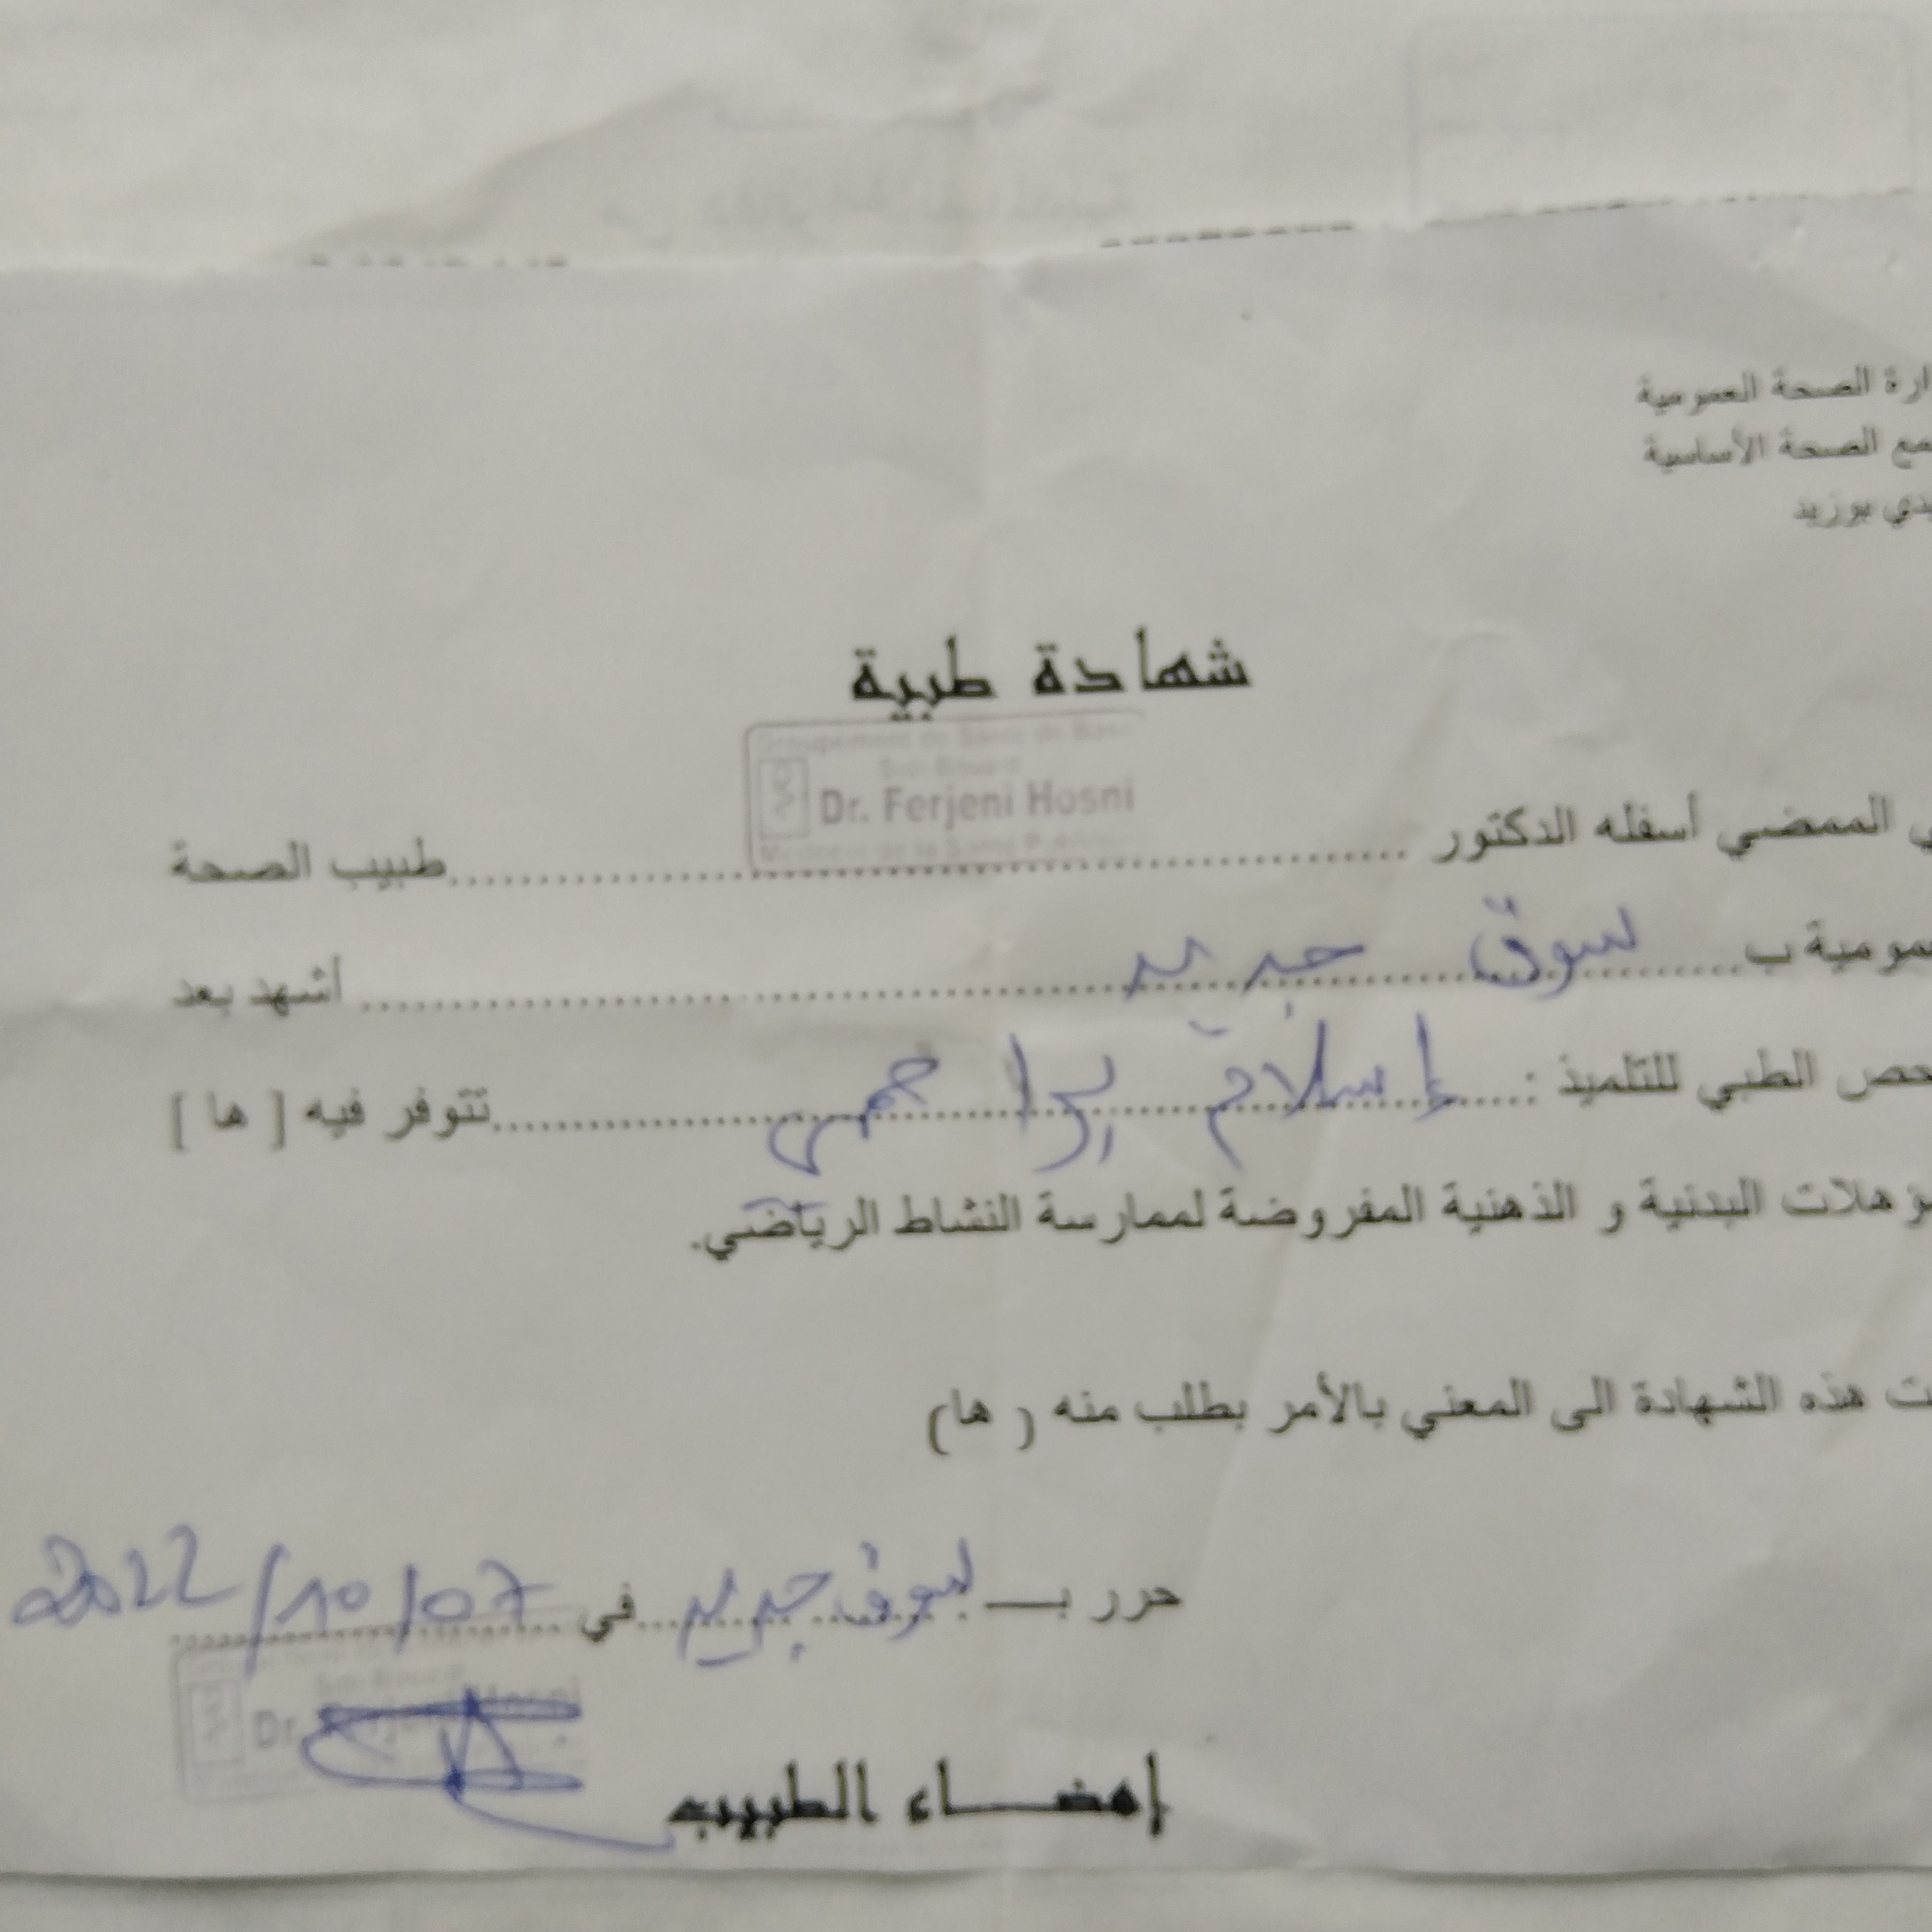 ارة الصحة العمومية
مع الصحة الأساسية
يدي بوزيد
شهادة طبية
Groupement de Santé de Base
Dr. Ferjeni Hosni
Médecin de la Santé Publique
ي الممضي أسفله الدكتور ........ طبيب الصحة
مومية ب ........ سوق جديد ........ أشهد بعد
حص الطبي للتلميذ : ........ إسلام براهمي ........ تتوفر فيه [ ها ]
ؤهلات البدنية و الذهنية المفروضة لممارسة النشاط الرياضي.
ت هذه الشهادة الى المعني بالأمر بطلب منه ( ها)
حرر بـ سوق جديد في 2022/10/07
Dr.
إمضاء الطبيب